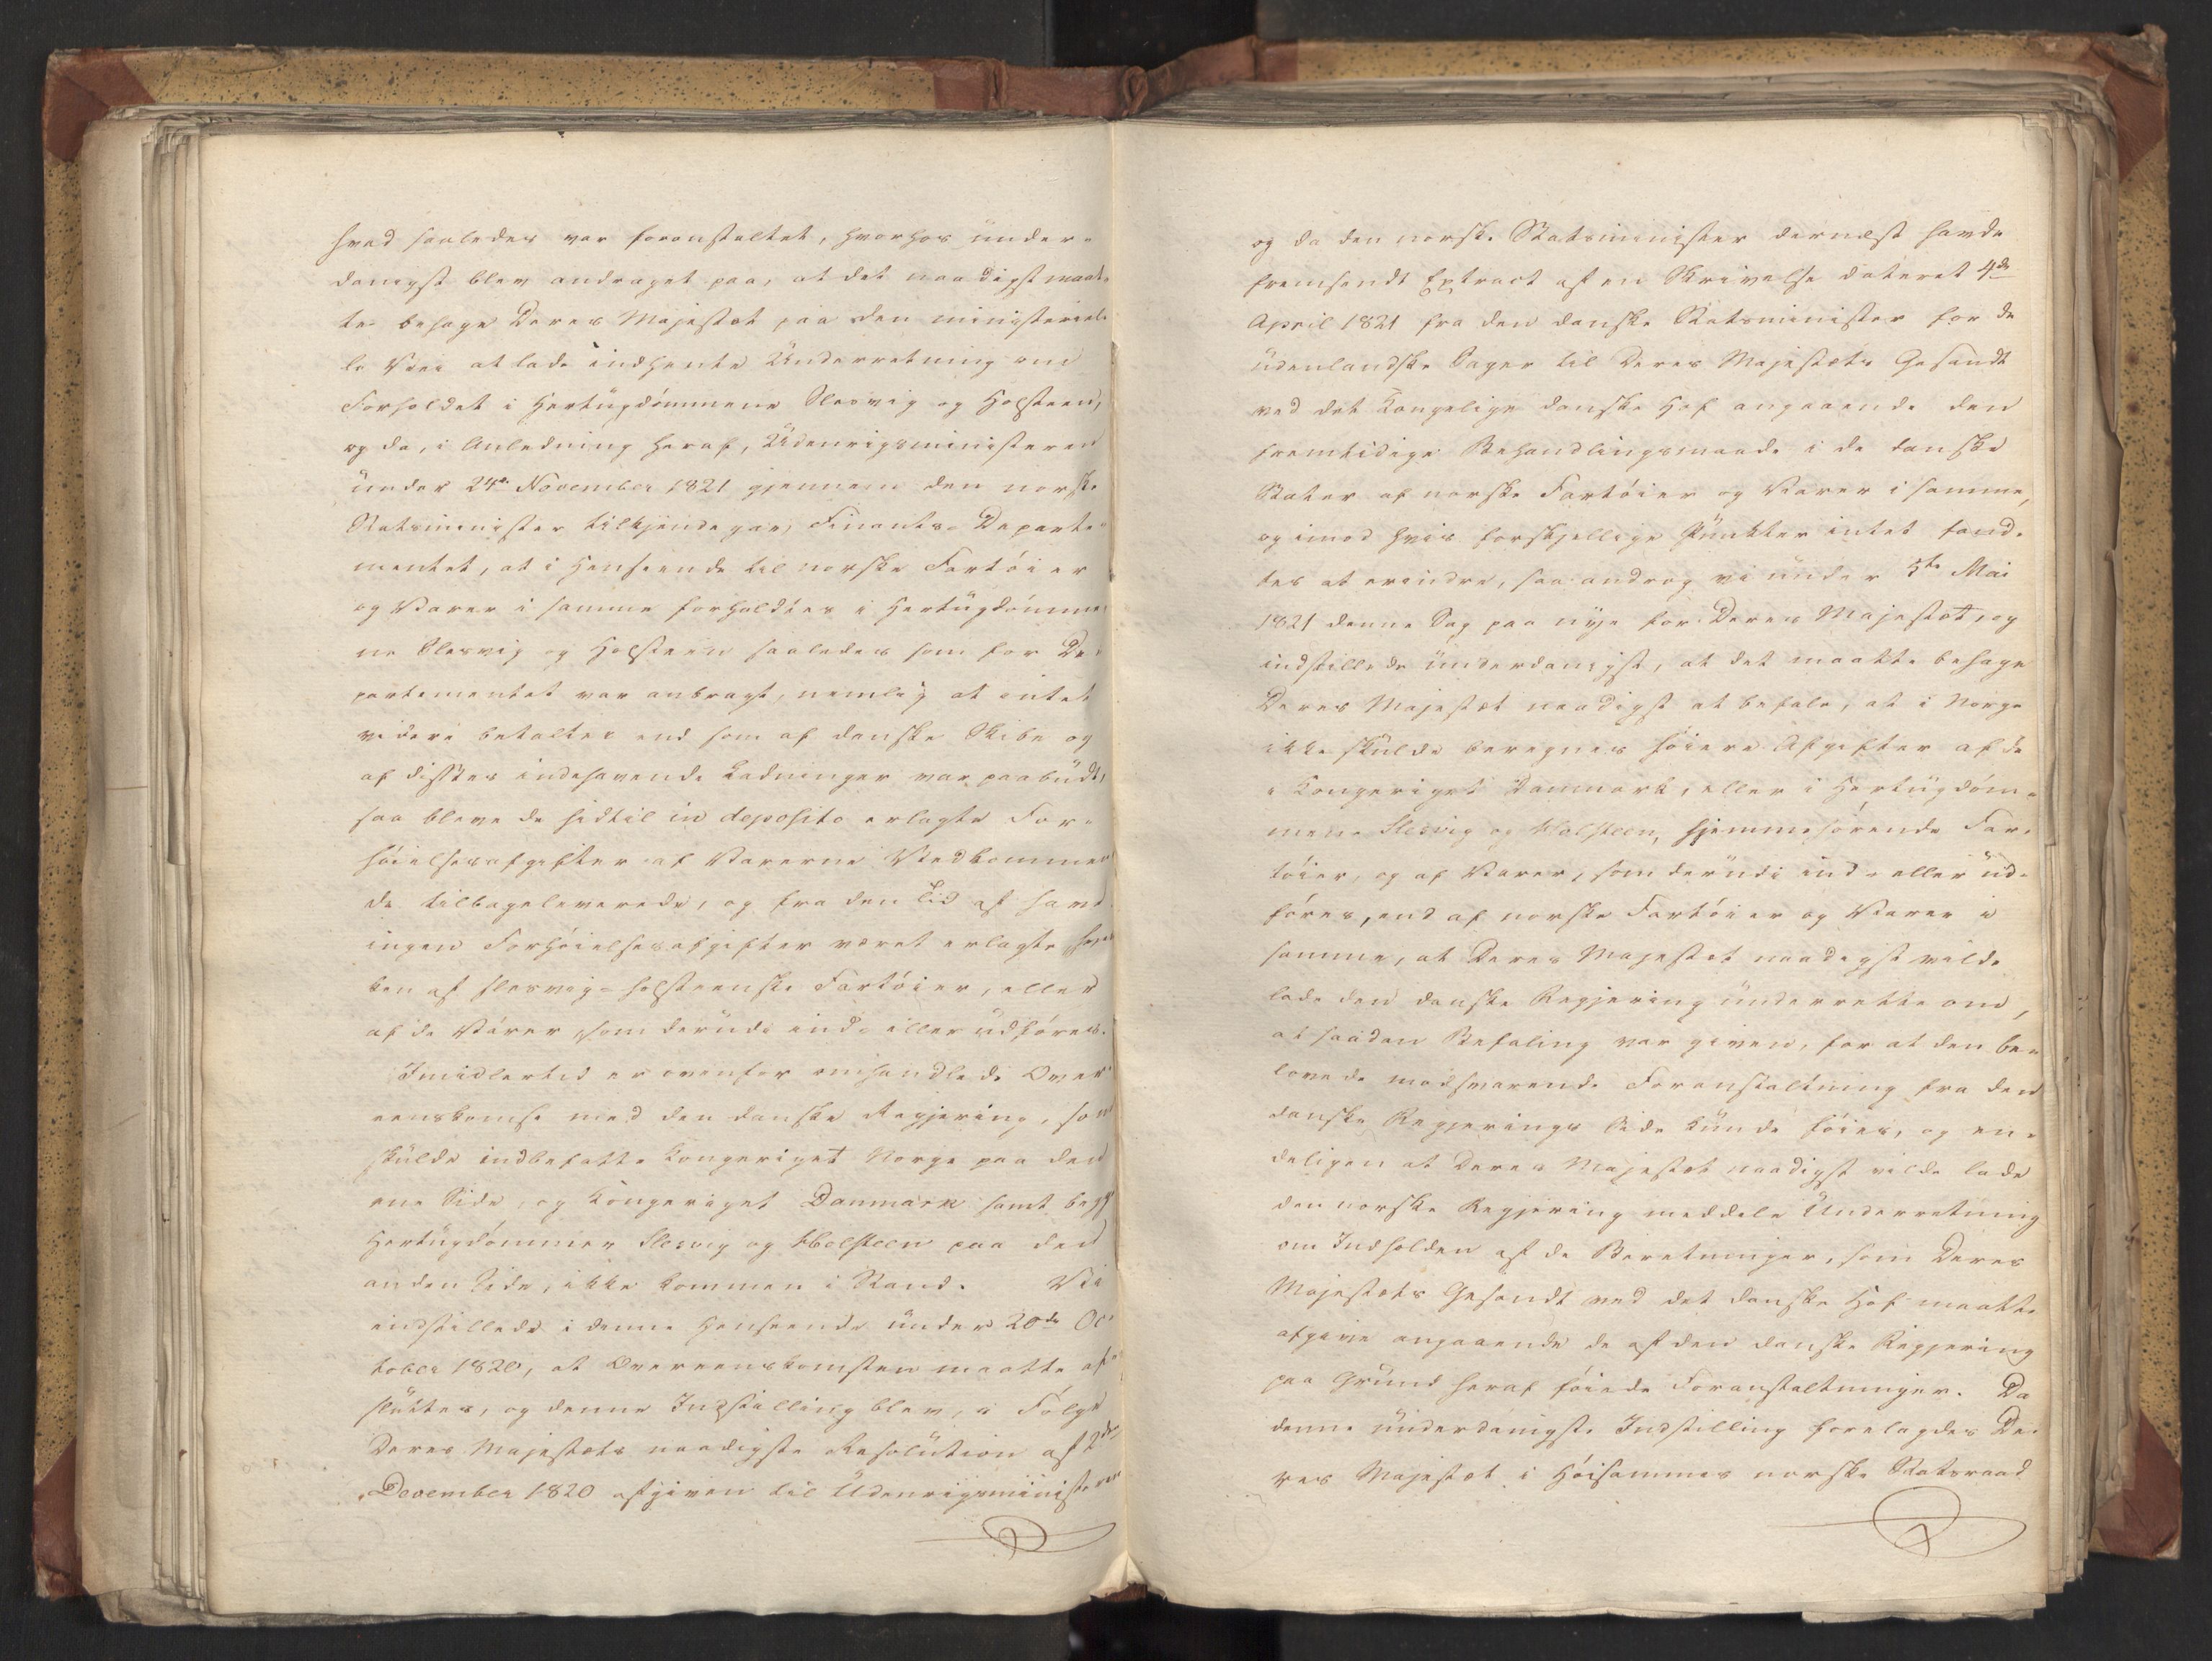 hvad saaledes var foranstaltet, hvorhos under-
danigst blev andraget paa, at det naadigst maat-
te behage Deres Majestæt paa den ministeriel-
le Veie at lade indhente Underretning om
Forholdet i Hertugdømmene Slesvig og Holsteen,
og da, i Anledning heraf, Udenrigsministeren
under 24de November 1821 gjennem den norske
Statsminister tilkjendegav Finants-Departe-
mentet, at i Henseende til norske Fartøier
og Varer i samme forholdtes i Hertugdømme-
ne Slesvig og Holsteen saaledes som for De-
partementet var anbragt, nemlig at intet
videre betaltes end som af danske Skibe og
af disses indehavende Ladninger var paabudt,
saa bleve de hidtil in deposito erlagte For-
høielsesafgifter af Varerne Vedkommen-
de tilbageleverede, og fra den Tid af have
ingen Forhøielsesafgifter været erlagte, hver-
ken af slesvig-holsteenske Fartøier, eller
af de Varer, som derudi ind- eller udføres.
Imidlertid er ovenfor omhandlede Over-
eenskomst med den danske Regjering, som
skulde indbefatte Kongeriget Norge paa den
ene Side, og Kongeriget Danmark samt begge
Hertugdømmer Slesvig og Holsteen paa den
anden Side, ikke kommen i Stand. Vi
indstillede i denne Henseende under 20de Oc-
tober 1820, at Overeenskomsten maatte af-
sluttes, og denne Indstilling blev, i Følge
Deres Majestæts naadigste Resolution af 2den
December 1820 afgiven til Udenrigsministeren
og da den norske Statsminister dernæst havde
fremsendt Extract af en Skrivelse dateret 4de
April 1821 fra den danske Statsminister for de
udenlandske Sager til Deres Majestæts Gesandt
ved det Kongelige danske Hof angaaende den
fremtidige Behandlingsmaade i de danske
Stater af norske Fartøier og Varer i samme,
og imod hvis forskjellige Punkter intet fand-
tes at erindre, saa androg vi under 5te Mai
1821 denne Sag paa nye for Deres Majestæt, og
indstillede underdanigst, at det maatte behage
Deres Majestæt naadigst at befale, at i Norge
ikke skulde beregnes høiere Afgifter af de
i Kongeriget Danmark, eller i Hertugdøm-
mene Slesvig og Holsteen, hjemmehørende Far-
tøier, og af Varer, som derudi ind- eller ud-
føres, end af norske Fartøier og Varer i
samme, at Deres Majestæt naadigst vilde
lade den danske Regjering underrette om,
at saadan Befaling var given, for at den be-
lovede modsvarende Foranstaltning fra den
danske Regjerings Side kunde føies, og en-
deligen at Deres Majestæt naadigst vilde lade
den norske Regjering meddele Underretning
om Indholden af de Beretninger, som Deres
Majestæts Gesandt ved det danske Hof maatte
afgive angaaende de af den danske Regjering
paa Grund heraf føiede Foranstaltninger. Da
denne underdanigste Indstilling forelagdes De-
res Majestæt i Høisammes norske Statsraad